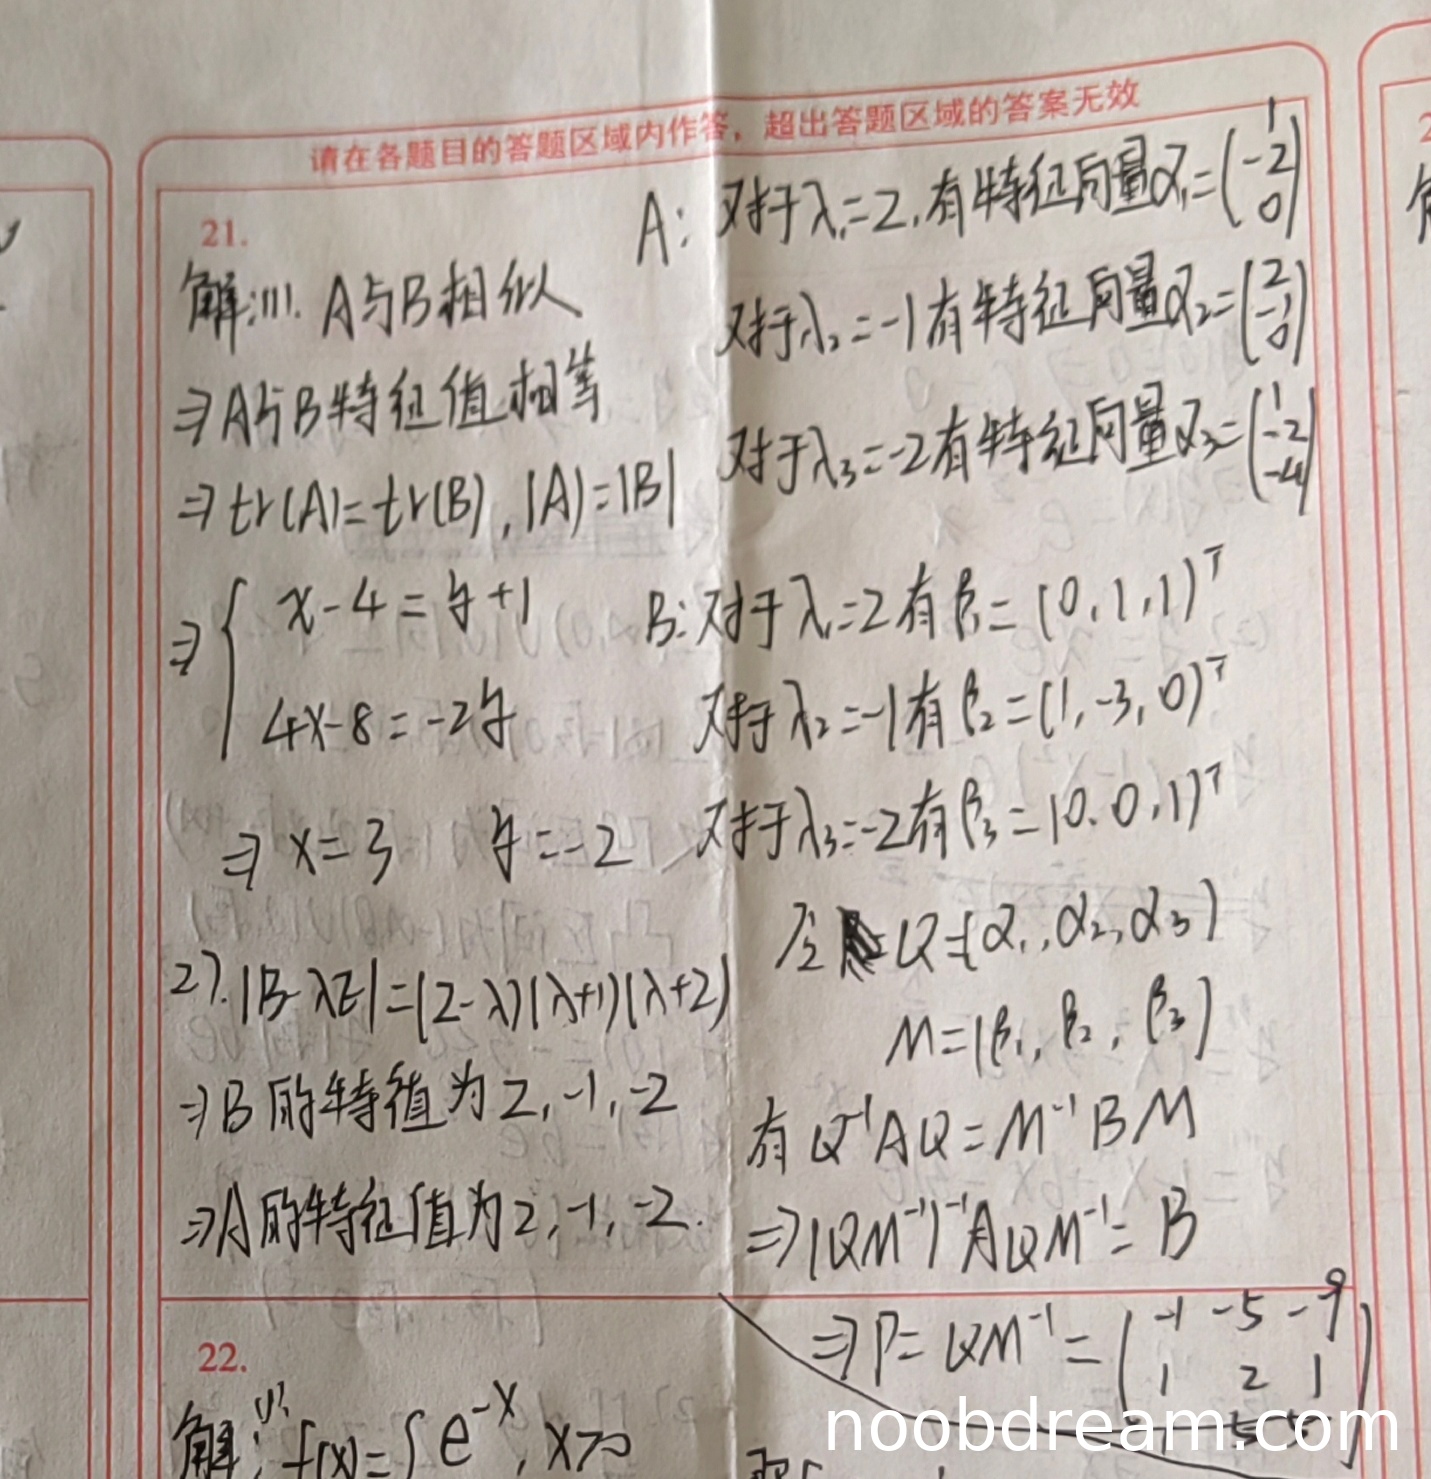 请在各题目的答题区域内作答，超出答题区域的答案无效
21.
解:(1). A与B相似
⇒A与B特征值相等
⇒tr(A)=tr(B), |A|=|B|
⇒{ x-4=y+1
4x-8=-2y
⇒ x=3 y=-2
2). |B-λE|=(2-λ)(λ+1)(λ+2)
⇒B的特值为2,-1,-2
⇒A的特征值为2,-1,-2.
A: 对于λ₁=2,有特征向量α₁=(1 -2 0)
对于λ₂=-1有特征向量α₂=(2 -1 0)
对于λ₃=-2有特征向量α₃=(1 -2 -4)
B: 对于λ₁=2有β₁=(0,1,1)ᵀ
对于λ₂=-1有β₂=(1,-3,0)ᵀ
对于λ₃=-2有β₃=(0,0,1)ᵀ
令 Q=(α₁,α₂,α₃)
M=(β₁,β₂,β₃)
有 Q⁻¹AQ=M⁻¹BM
⇒(QM⁻¹)⁻¹AQM⁻¹=B
⇒P=QM⁻¹=( -1 -5 -9
1 2 1
22.
解:(1) f(x)=∫e⁻ˣ, x>0
noobdream.com